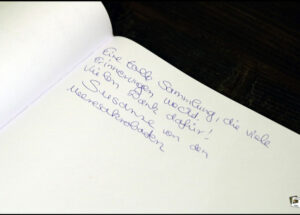 Eine tolle Sammlung, die viele
Erinnerungen weckt.
Vielen Dank dafür!
Susanne von den